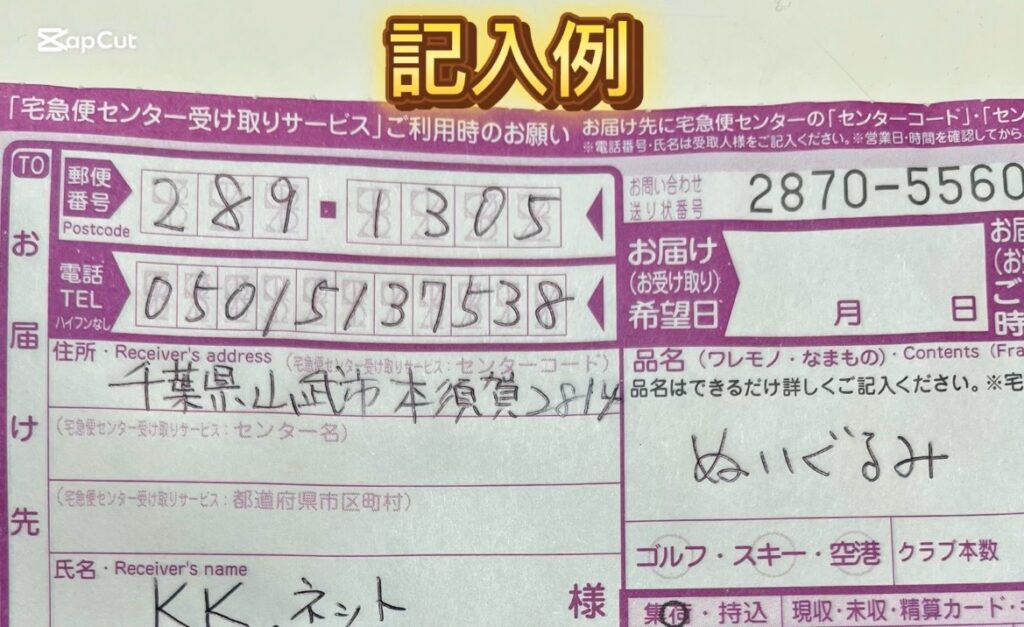 CapCut
記入例
「宅急便センター受け取りサービス」ご利用時のお願い
お届け先に宅急便センターの「センターコード」・「セン
※電話番号・氏名は受取人様をご記入ください。※営業日・時間を確認してから
TO
お届け先
郵便番号
Postcode
289-1305
電話
TEL
ハイフンなし
05015137538
住所・Receiver's address
(宅急便センター受け取りサービス:センターコード)
千葉県山武市本須賀2814
(宅急便センター受け取りサービス:センター名)
(宅急便センター受け取りサービス:都道府県市区町村)
氏名・Receiver's name
KK.ネット
様
お問い合わせ
送り状番号
2870-5560
お届け
(お受け取り)
希望日
月 日
お届
(お受
ご
時
品名(ワレモノ・なまもの)・Contents (Fra
品名はできるだけ詳しくご記入ください。※宅
ぬいぐるみ
ゴルフ・スキー・空港
クラブ本数
集荷・持込
現収・未収・精算カード・